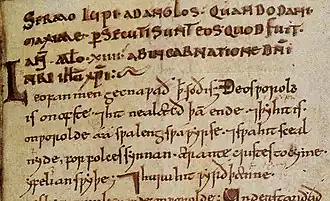 SERMO LUPI AD ANGLOS. QUANDO DANI
MAXIME PERSECUTI SUNT EOS QUOD FUIT
AN̄. MIL̄O XIIII AB INCARNATIONE DN̄I
NR̄I IHŪ XPĪ:
Leofan men gecnapað þ soð is. Ðeos worold
is on ofste ⁊ hit nealæcð þā ende. ⁊ þy hit is
on worolde aa swa leng swa wyrse. ⁊ swa hit sceal
nyde, for folces synnan ær antecristes tocyme
yfelian swyþe. ⁊ huru hit wyrð þænne
worolde. Understandað